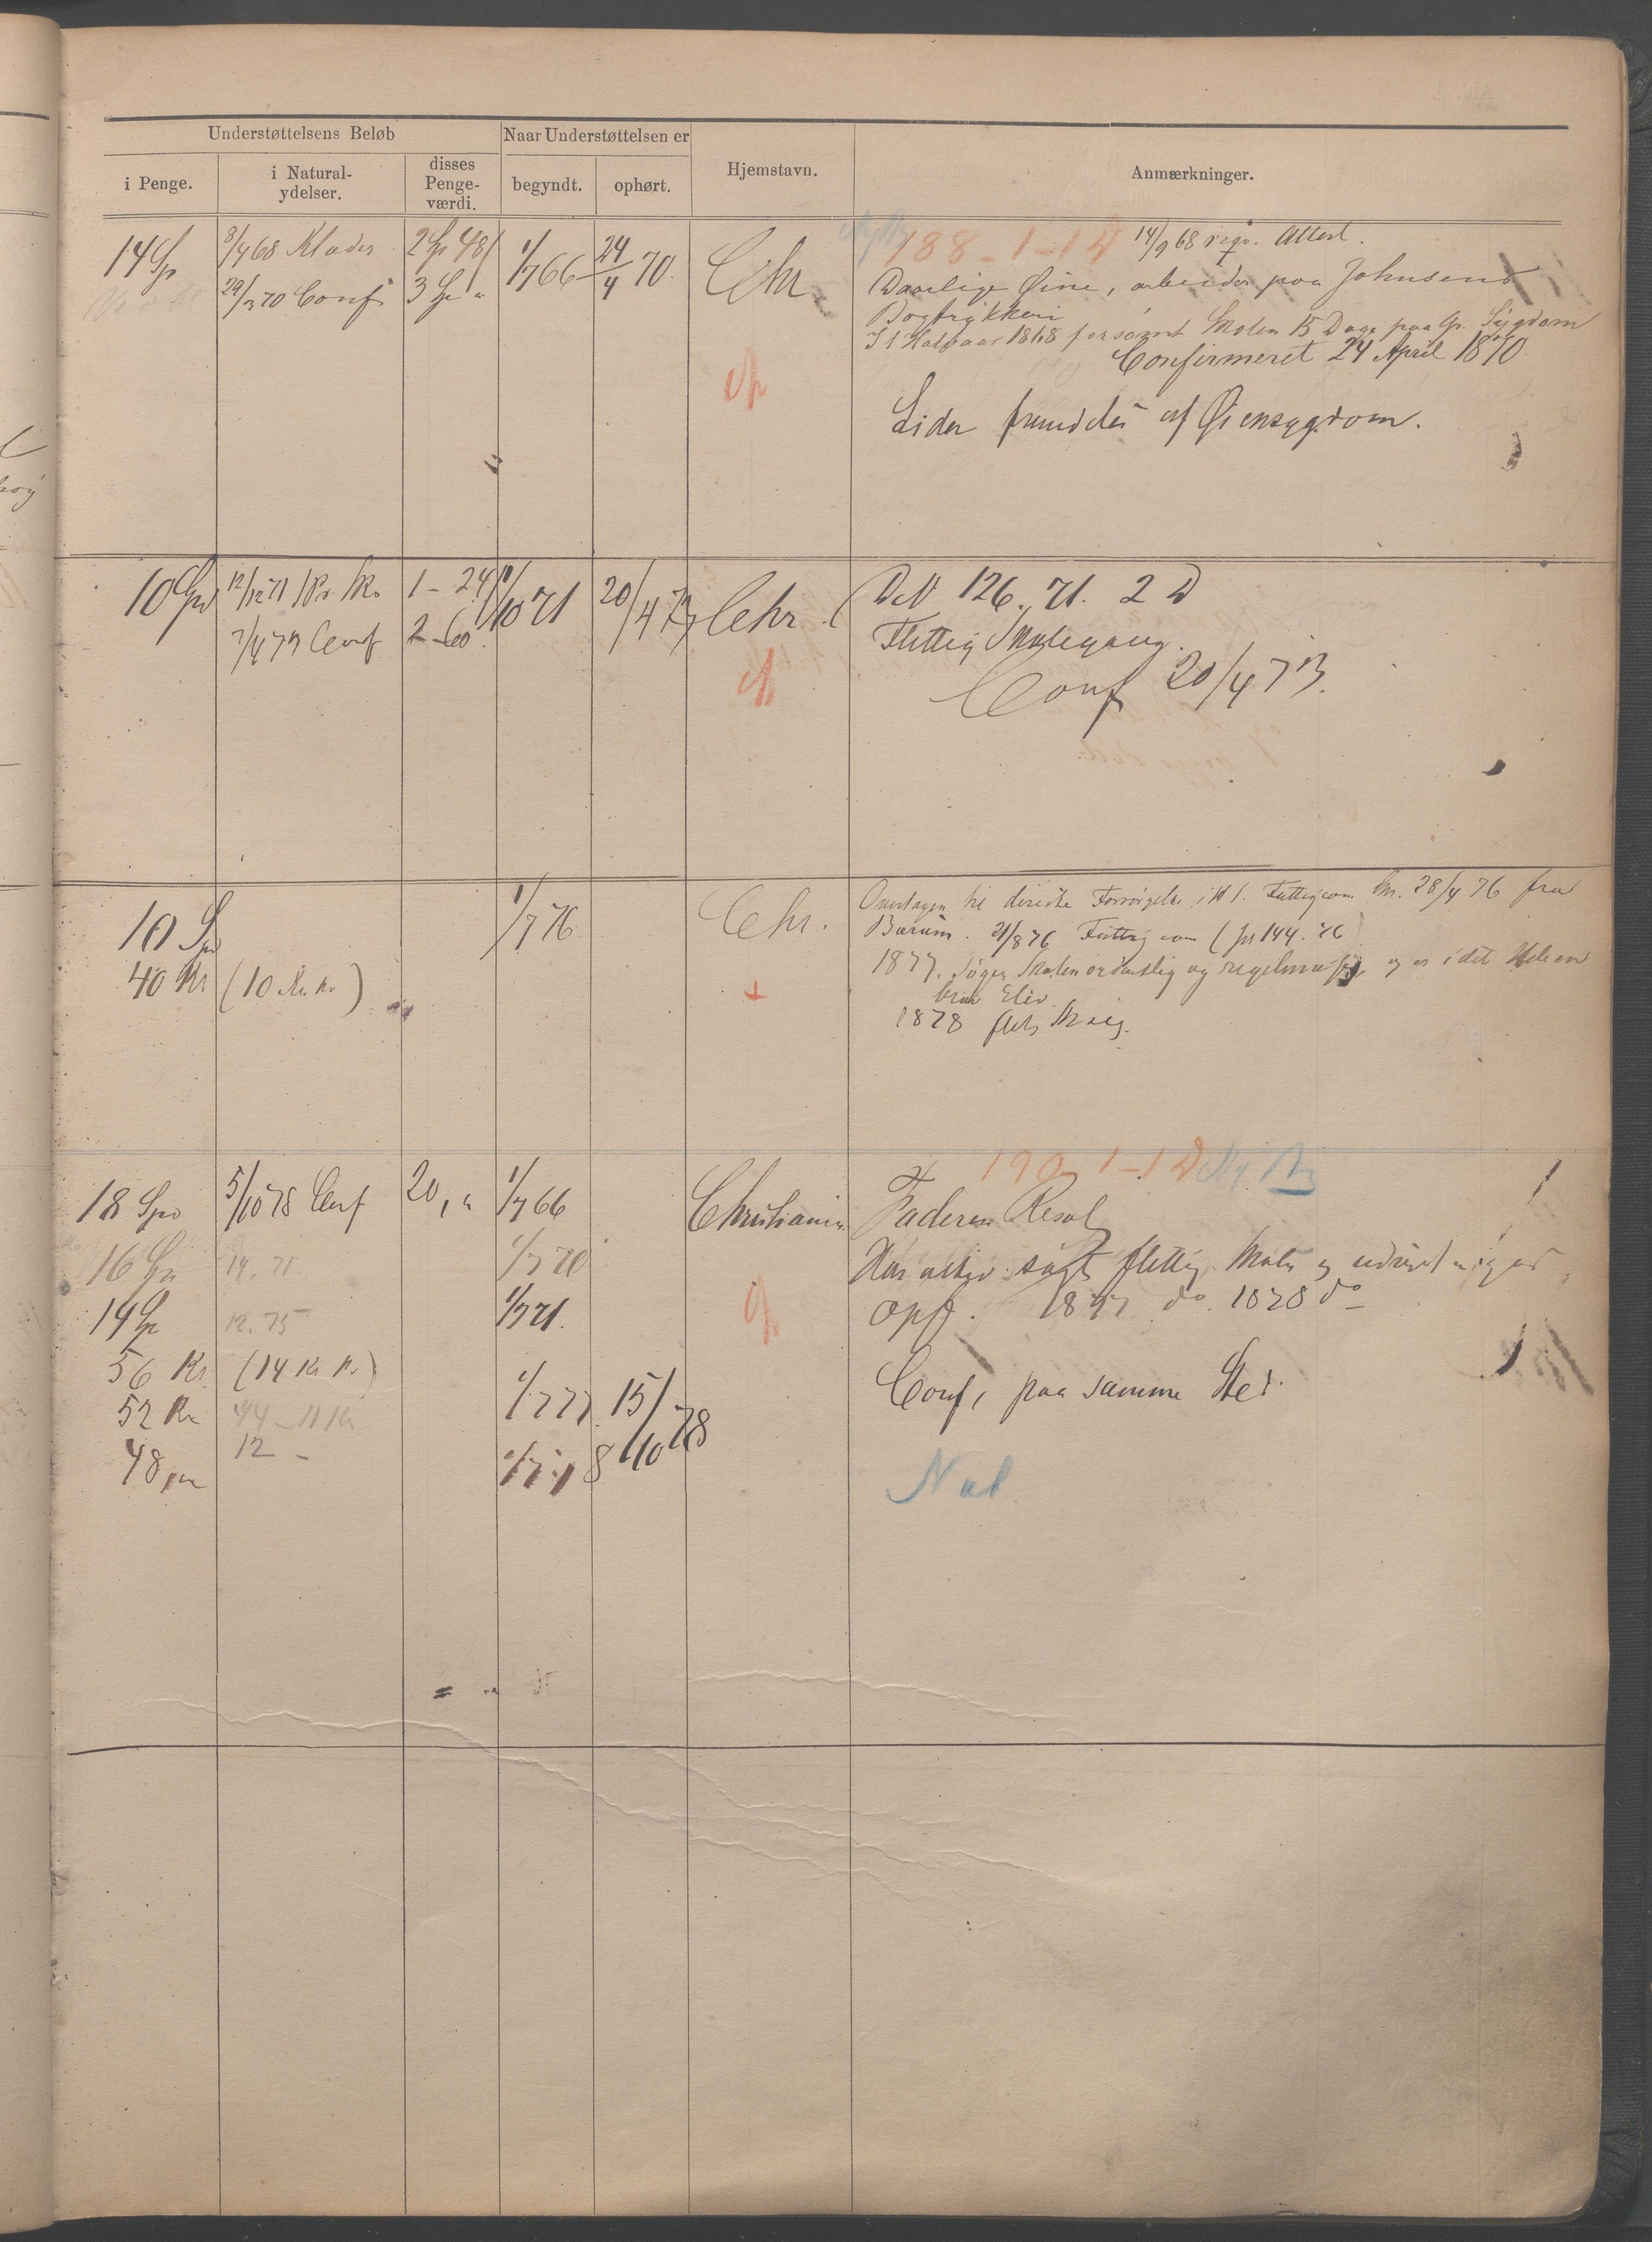 Understøttelsens Beløb
Naar Understøttelsen er
i Penge.
i Natural-
ydelser.
disses
Penge-
værdi.
begyndt.
ophørt.
Hjemstavn.
Anmærkninger.
14 Sp
8/4 68 Klæder
2 Sp 48
1/7 66
24/4 70.
Chr
29/3 70 Conf
3 Sp "
188 - 1 - 1 D
14/9 68 Attest.
Daarlige Øine, arbeider paa Johnsens
Bogtrykkeri
I 1 Halvaar 1868 forsømt Skolen 15 Dage paa Gr. Sygdom
Confirmeret 24 April 1870.
Lider fremdeles af Øiensygdom.
10 Spd
12/12 71
1 - 24
1/10 71
20/4 73
Chr.
7/4 73 Conf
2 - 60
126. 71. 2 D
Flittig Skolegang.
Conf 20/4 73.
10 Spd
1/7 76
Chr.
40 Kr
(10 Kr. Kv.)
Overtagen til direkte Forsørgelse i H. t. Fattigcom Skr. 28/4 76 fra
Bærum. 21/8 76 Fattigcom (Jr 144. 76)
1877. Søger Skolen ordentlig og regelmæssig, og er i det Hele en
bra Elev
1878 flit. Skolg.
18 Spd
5/10 78 Conf
20, "
1/7 66
Christiania
190, 1 - 1 D Ny
Faderen
16 Sp
14. 71
1/7 70
Har altid søgt flittig Skolen og udvist
14 Sp
12. 75
1/7 71.
opf. 1877 do. 1878 do
56 Kr.
(14 Kr Kv.)
Conf, paa samme Sted.
52 Kr
44 - 11 Kr
1/7 77.
15/10 78
48 "
12 -
1/7 78